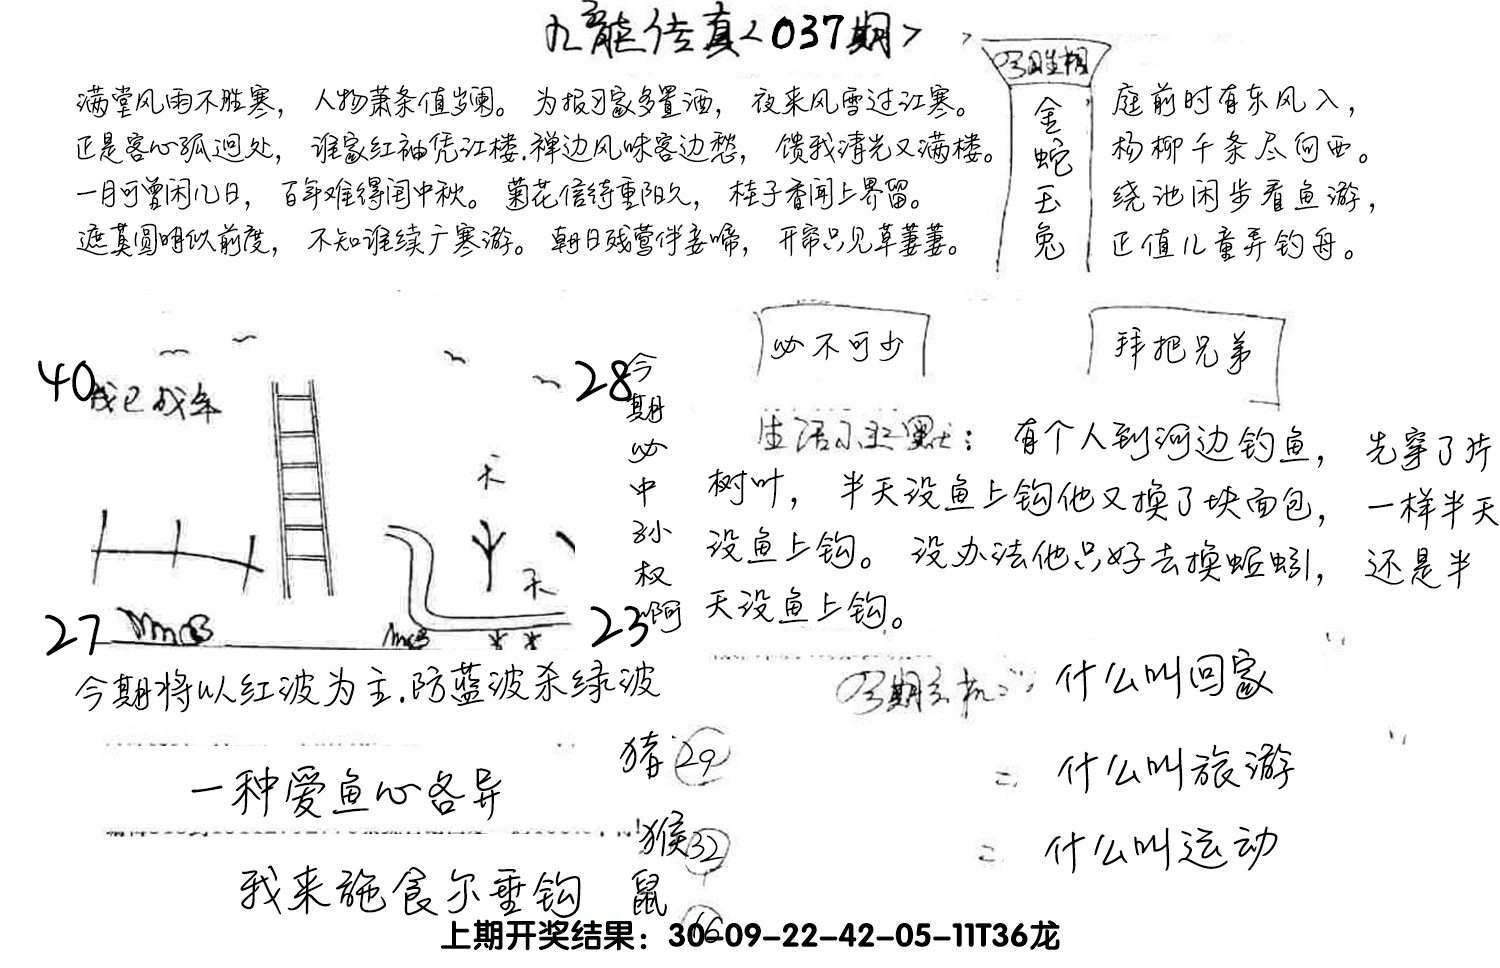 九龙传真<037期>
满堂风雨不胜寒，人物萧条值岁阑。为报习家多置酒，夜来风雪过江寒。
正是客心孤迥处，谁家红袖凭江楼.禅边风味客边愁，馈我清光又满楼。
一月可曾闲几日，百年难得闰中秋。菊花信待重阳久，桂子香闻上界留。
遮莫圆明似前度，不知谁续广寒游。朝日残莺伴妾啼，开帘只见草萋萋。
今期生相
金蛇玉兔
庭前时有东风入，
杨柳千条尽向西。
绕池闲步看鱼游，
正值儿童弄钓舟。
必不可少
拜把兄弟
40
28
我已成年
天
天
27
23
今期必中孙权啊
生活幽默：有个人到河边钓鱼，先穿了片
树叶，半天没鱼上钩他又换了块面包，一样半天
没鱼上钩。没办法他只好去换蚯蚓，还是半
天没鱼上钩。
今期将以红波为主.防蓝波杀绿波
今期玄机：什么叫回家
什么叫旅游
什么叫运动
猪29
猴32
鼠16
一种爱鱼心各异
我来施食尔垂钩
上期开奖结果：30-09-22-42-05-11T36龙